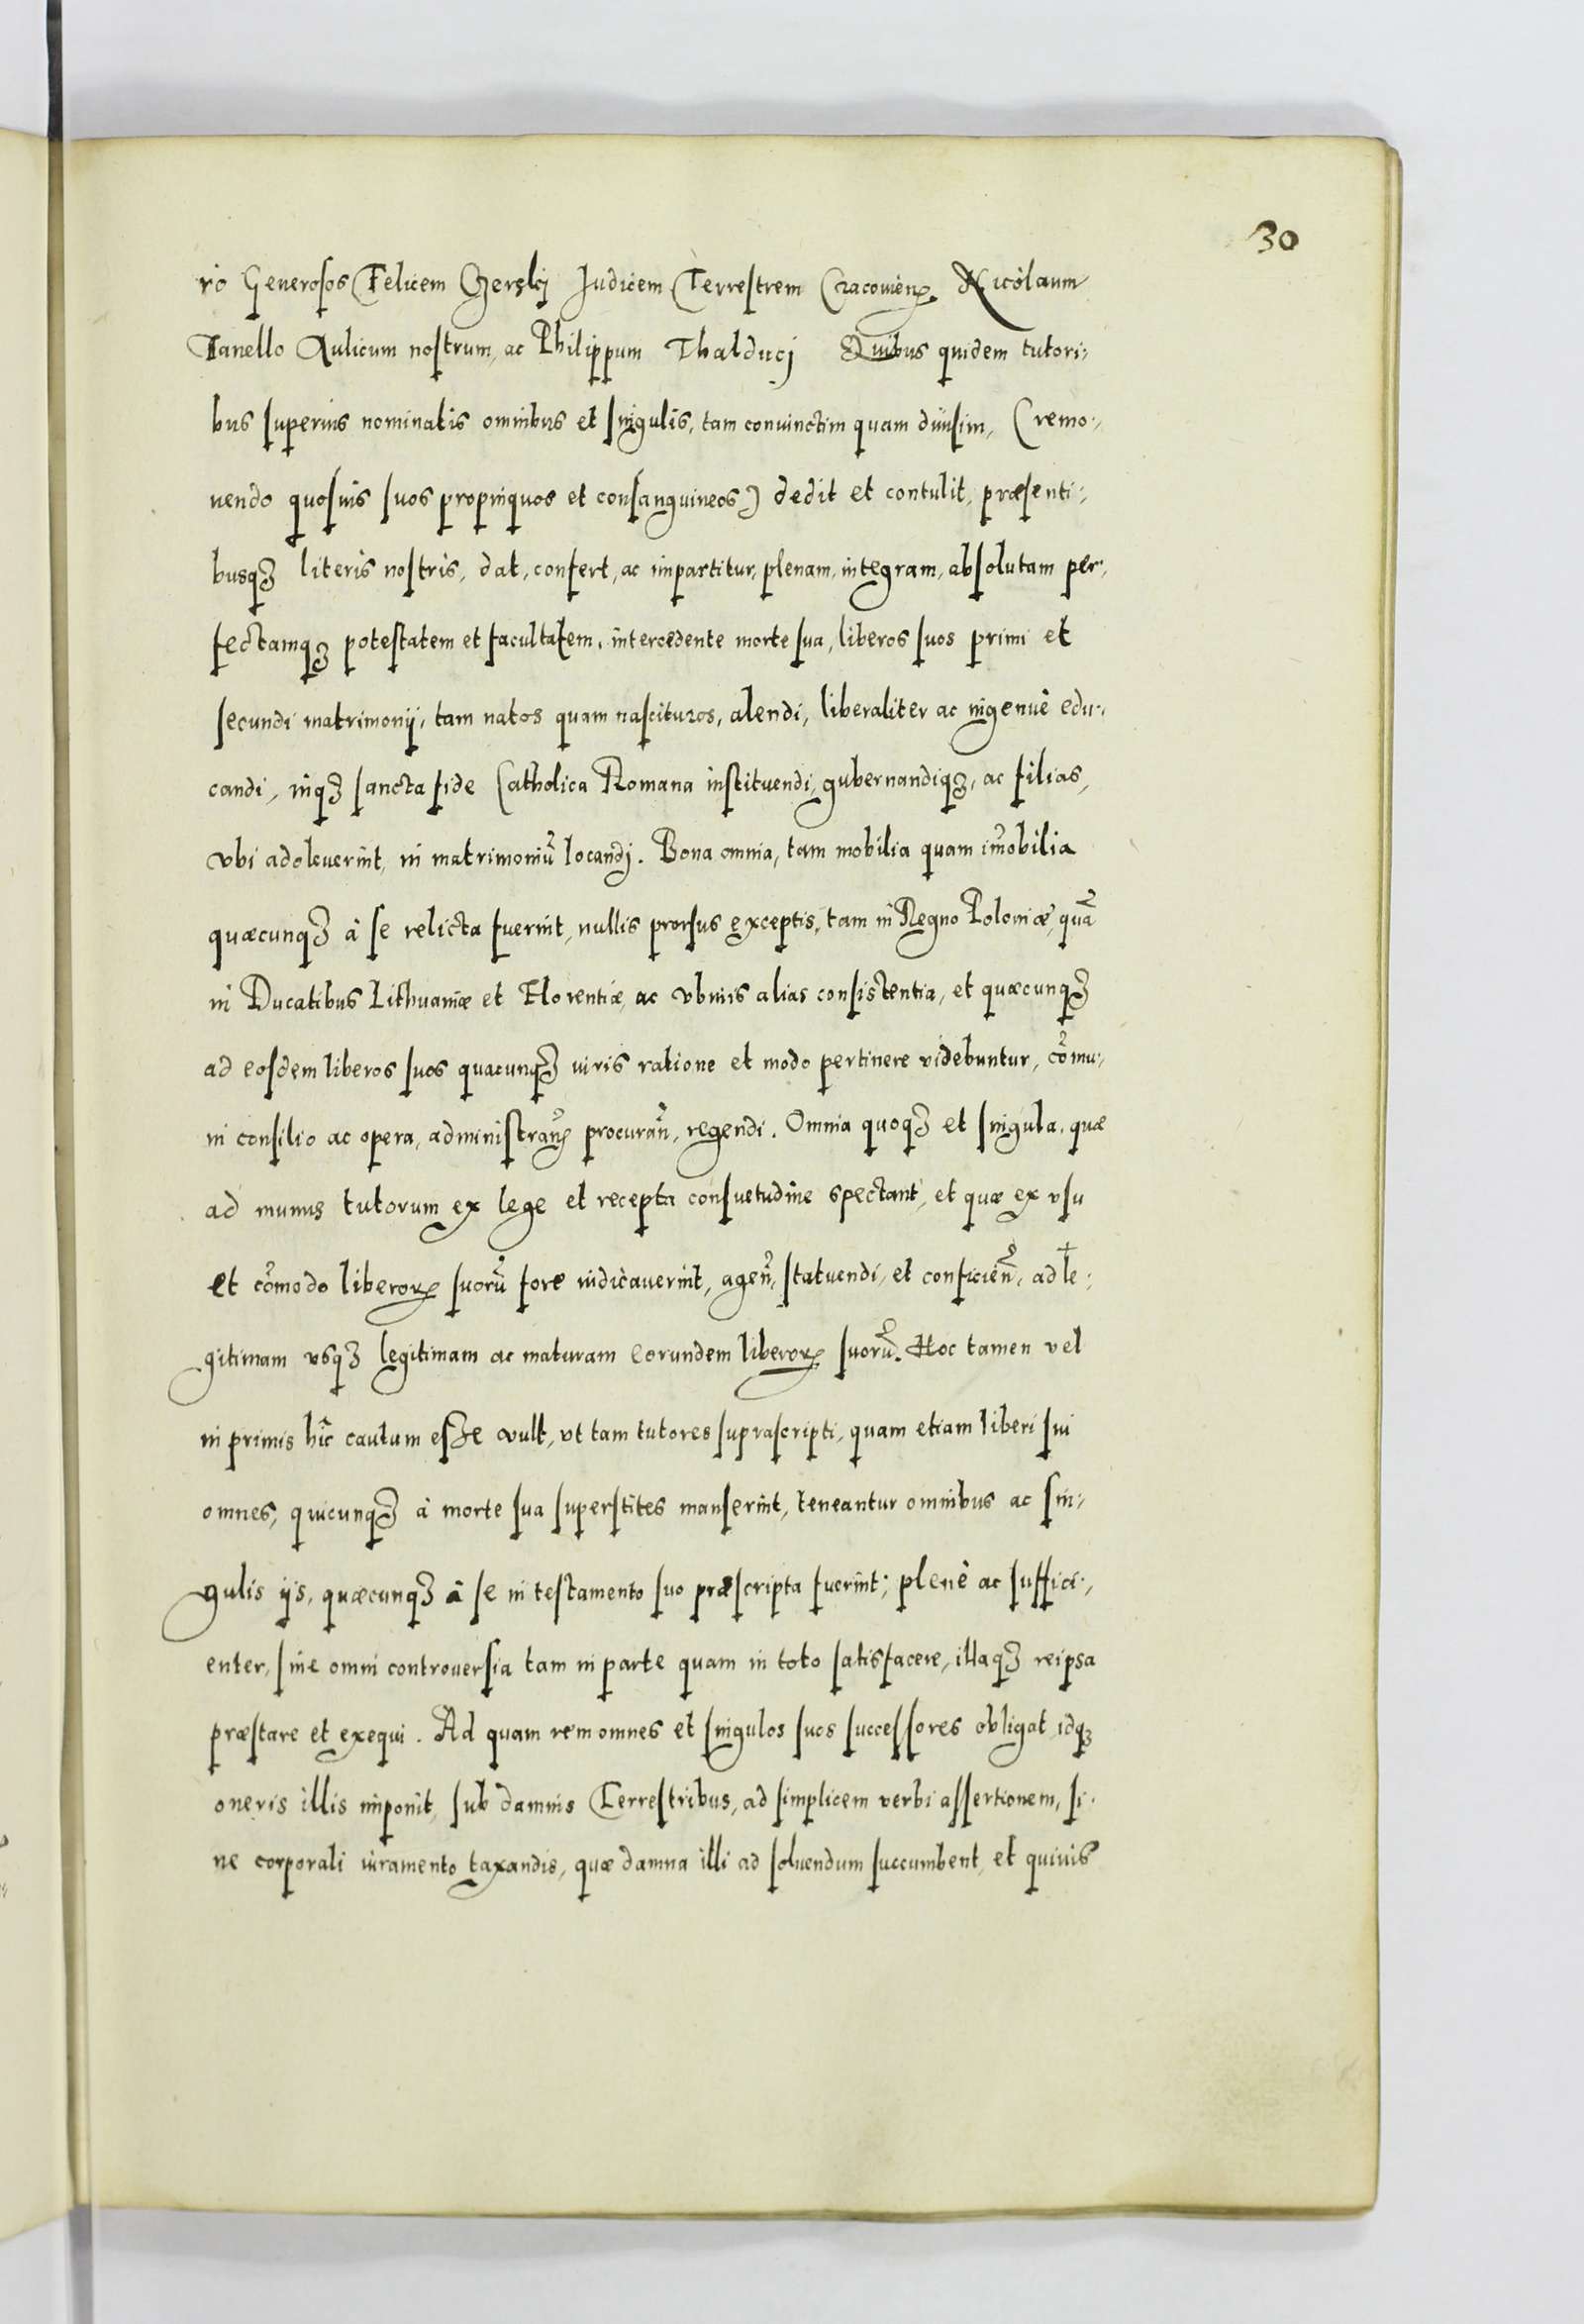 30
rò Generosos Felicem Czerskj Iudicem Terrestrem Cracovień. Nicolaum
Tanello Aulicum nostrum, ac Philippum Thalducj Quibus quidem tutori-
bus superius nominatis omnibus et singulis, tam coniunctim quam diuisim, (remo-
uendo quosuis suos propinquos et consanguineos) dedit et contulit, præsenti-
busqꝫ literis nostris, dat, confert, ac impartitur, plenam, integram, absolutam per-
fectamqꝫ potestatem et facultatem, intercedente morte sua, liberos suos primi et
secundi matrimonij, tam natos quam nascituros, alendi, liberaliter ac ingenuè edu-
candi, inqꝫ sancta fide Catholica Romana instituendi, gubernandiqꝫ, ac filias,
vbi adoleuerint, in matrimoniũ locandj. Bona omnia, tam mobilia quam im̃obilia
quæcunqꝫ à se relicta fuerint, nullis prorsus exceptis, tam in Regno Poloniæ, quã
in Ducatibus Lithuaniæ et Florentiæ, ac vbiuis alias consistentia, et quæcunqꝫ
ad eosdem liberos suos quacunqꝫ iuris ratione et modo pertinere videbuntur, cõmu-
ni consilio ac opera, administrañ, procurañ, regendi. Omnia quoqꝫ et singula, quæ
ad munus tutorum ex lege et recepta consuetudine spectant, et quæ ex vsu
et cõmodo liberoꝝ suorũ fore iudicauerint, ageñ, statuendi, et conficieñ, ad le-
gitimam vsqꝫ legitimam ac maturam eorundem liberoꝝ suorũ. Hoc tamen vel
in primis hîc cautum esse vult, vt tam tutores suprascripti, quam etiam liberi sui
omnes, quicunqꝫ à morte sua superstites manserint, teneantur omnibus ac sin-
gulis ijs, quæcunqꝫ à se in testamento suo præscripta fuerint; plenè ac suffici-
enter, sine omni controuersia tam in parte quam in toto satisfacere, illaqꝫ reipsa
præstare et exequi. Ad quam rem omnes et singulos suos successores obligat, idqꝫ
oneris illis imponit, sub damnis Terrestribus, ad simplicem verbi assertionem, si-
ne corporali iuramento taxandis, quæ damna illi ad soluendum succumbent, et quiuis